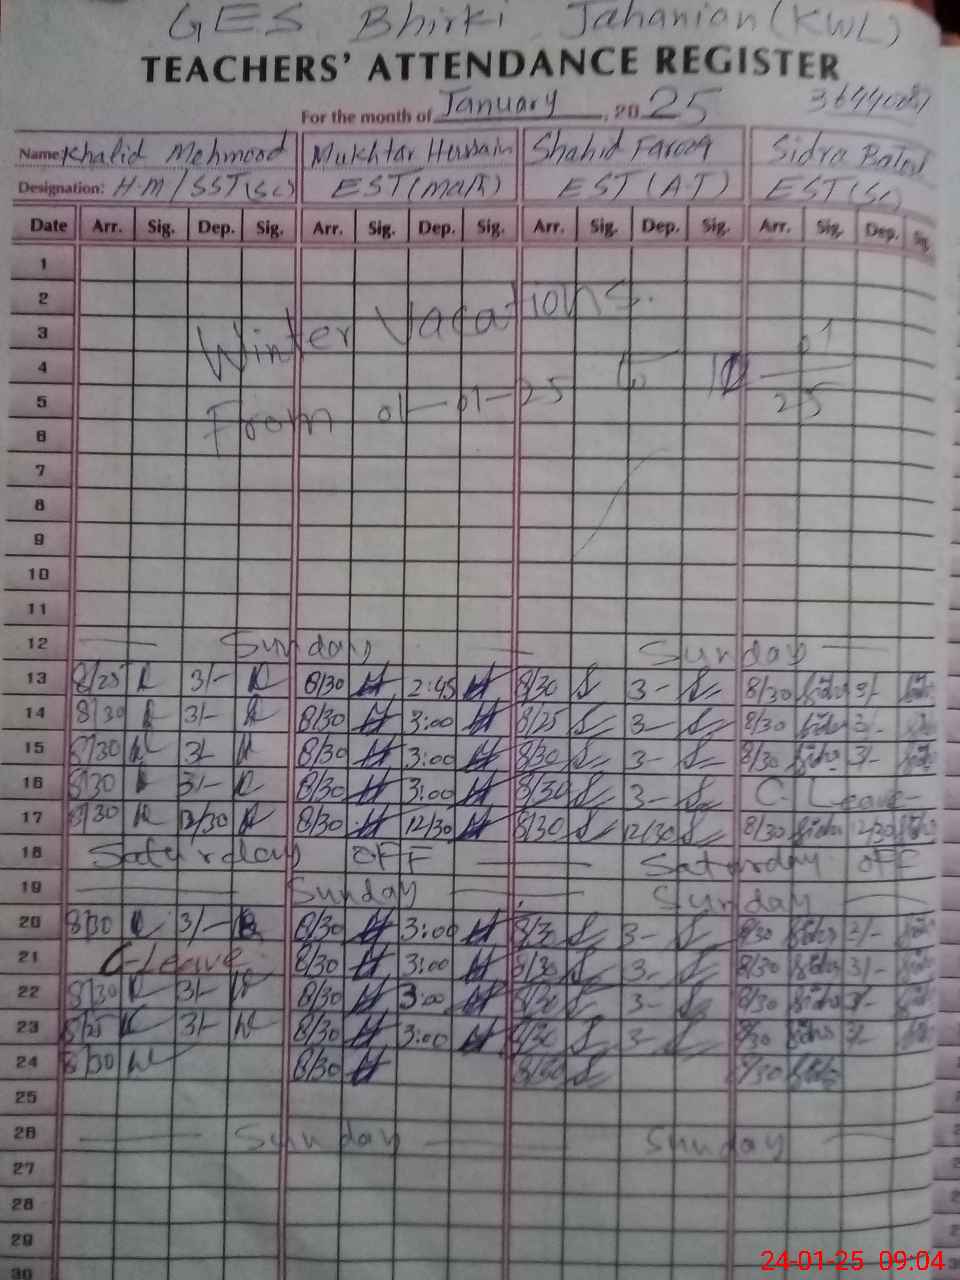 GES Bhirki Jahanian (KWL)
TEACHERS' ATTENDANCE REGISTER
For the month of January, 2025
Name Khalid Mehmood Mukhtar Hussain Shahid Farooq Sidra Batool
Designation: H.M/SST(SC) EST(Math) EST(A.T) EST(Sc)
Date Arr. Sig. Dep. Sig. Arr. Sig. Dep. Sig. Arr. Sig. Dep. Sig. Arr. Sig. Dep. Sig.
1
2
Winter Vacations.
3
4
From 01-01-25 to
5
6
7
8
9
10
11
12 Sunday Sunday
13 8/25 3/- 8/30 2:45 8/30 3- 8/30 3/-
14 8/30 3/- 8/30 3:00 8/25 3- 8/30 3/-
15 8/30 3/- 8/30 3:00 8/30 3- 8/30 3/-
16 8/30 3/- 8/30 3:00 8/30 3- C-Leave
17 8/30 12/30 8/30 12/30 8/30 12/30 8/30 12/30
18 Saturday OFF Saturday OFF
19 Sunday Sunday
20 8/30 3/- 8/30 3:00 8/30 3- 8/30
21 C-Leave 8/30 3:00 8/30 3- 8/30 3/-
22 8/30 3/- 8/30 3:00 8/30 3- 8/30 3/-
23 8/25 3/- 8/30 3:00 8/30 3- 8/30
24 8/30 8/30 8/30 8/30
25
26 Sunday Sunday
27
28
29
30
24-01-25 09:04